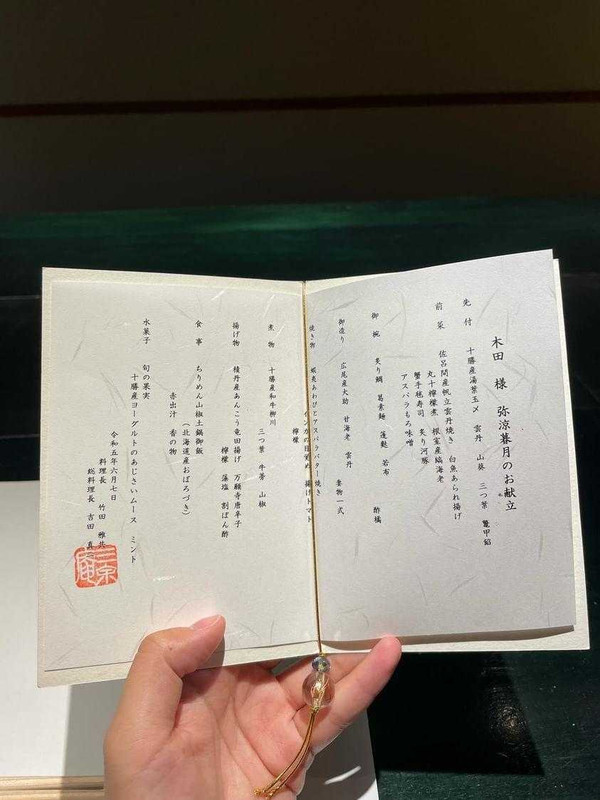 木田 様 弥涼暮月のお献立
先付 十勝産湯葉玉〆 雲丹 山葵 三つ葉 鼈甲餡
前菜 佐呂間産帆立雲丹焼き 白魚あられ揚げ
丸十檸檬煮 根室産縞海老
蟹手毬寿司 炙り河豚
アスパラもろ味噌
御椀 炙り鯛 葛素麺 蓮麩 若布 酢橘
御造り 広尾産大助 甘海老 雲丹 妻物一式
焼き物 蝦夷あわびとアスパラバター焼き
揚げトマト
檸檬
煮物 十勝産和牛柳川
三つ葉 牛蒡 山椒
揚げ物 積丹産あんこう竜田揚げ 万願寺唐辛子
檸檬 藻塩 割ぽん酢
食事 ちりめん山椒土鍋御飯
(北海道産おぼろづき)
赤出汁 香の物
水菓子 旬の果実
十勝産ヨーグルトのあじさいムース ミント
令和五年六月七日
料理長 竹田 雅共
総料理長 吉田 真